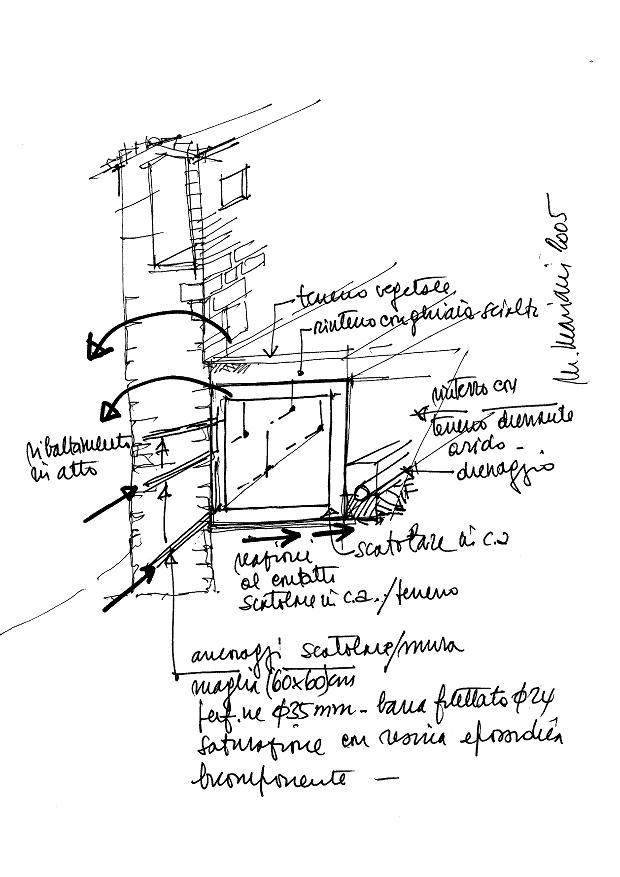 terreno vegetale
rinterro con ghiaia sciolta
rinterro con
terreno drenante
arido -
drenaggio
ribaltamento
in atto
scatolare in c.a
reazione
al contatto
scatolare in c.a./terreno
ancoraggi scatolare/mura
maglia (60x60)cm
perf.ne φ35mm - barra filettato φ24
saturazione con resina epossidica
bicomponente —
2005